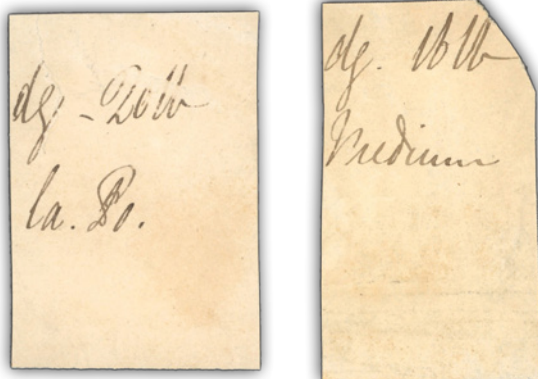 dg - 20 lb
la. Po.
dg. 16 lb
Medium